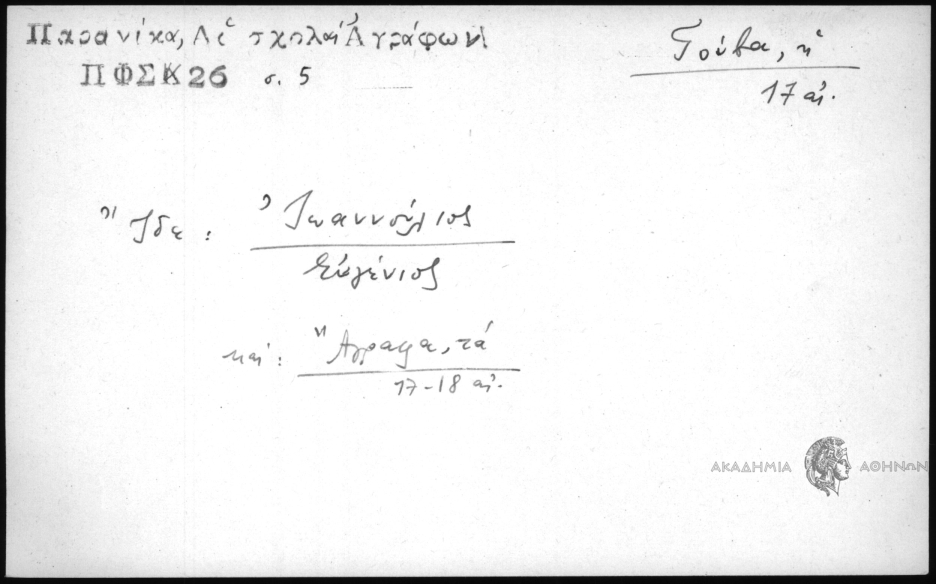 Παρανίκα, Αἱ σχολαί Ἀγράφων
ΠΦΣΚ26 σ. 5
Γούβα, ἡ
17 αἰ.
Ἴδε : Ἰωαννούλιος
Εὐγένιος
καί : Ἄγραφα, τά
17-18 αἰ.
ΑΚΑΔΗΜΙΑ ΑΘΗΝΩΝ